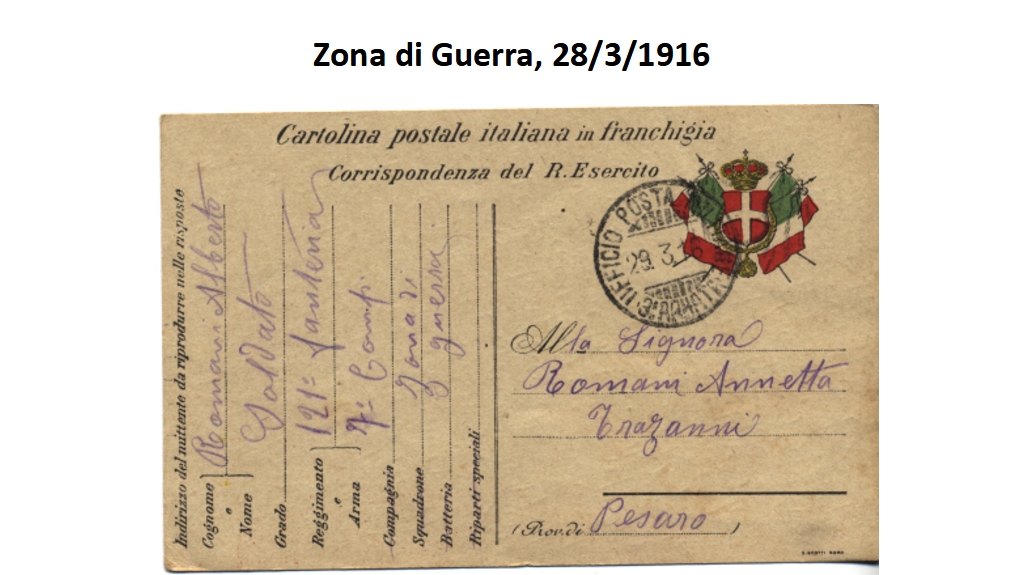 Zona di Guerra, 28/3/1916
Cartolina postale italiana in franchigia
Corrispondenza del R. Esercito
Indirizzo del mittente da riprodurre nelle risposte
Cognome e Nome Romani Alberto
Grado Soldato
Reggimento e Arma 121º fanteria
Compagnia 7ª Comp.
Squadrone Zona di
Batteria guerra
Riparti speciali
UFFICIO POSTA
29.3.16
3ª ARMATA
Alla Signora
Romani Annetta
Trazanni
(Prov. di Pesaro)